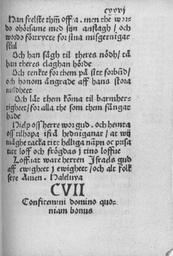 cxxxvi
Han frelste thm̃ offta. men the wor
do ohörsame med sijn anslagh / och
wordo förtryckte for sina misgerningar
skul
Och han sågh til theres nödh / tå
han theres claghan hörde
Och tenkte for them på sitt forbúd /
och honom ångrade aff hans stora
Och lät them koma til barmher-
tigheet / for alla the som them fångat
hade
Hielp oss herre wor gud. och hempta
oss tilhopa ifrå hedninganar / at wij
måghe tacka titt helliga nápn oc prisa
titt loff och frögdas i tino loffue
Loffuat ware herren Israels gud
aff ewigheet i ewigheet / och alt folk
seye Amen. Haleluya
CVII
Confitemini domino quo-
niam bonus